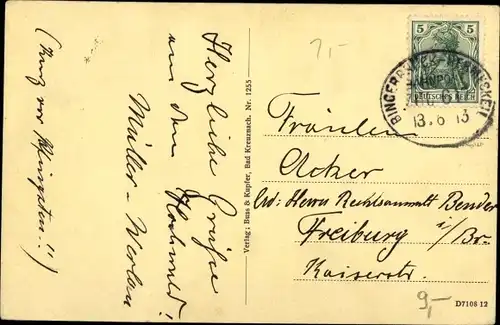 (Kurz vor Pfingsten!!)
Herzliche Grüße
aus dem Hochwald!
Müller-Werlau
Verlag: Buss & Kupfer, Bad Kreuznach. Nr. 1255
7,-
5 5
DEUTSCHES REICH
BINGERBRÜCK
13.6.13
Fräulein
Acker
Adr: Herrn Rechtsanwalt Bender
Freiburg i/Br.
Kaiserstr.
9,-
D7108 12